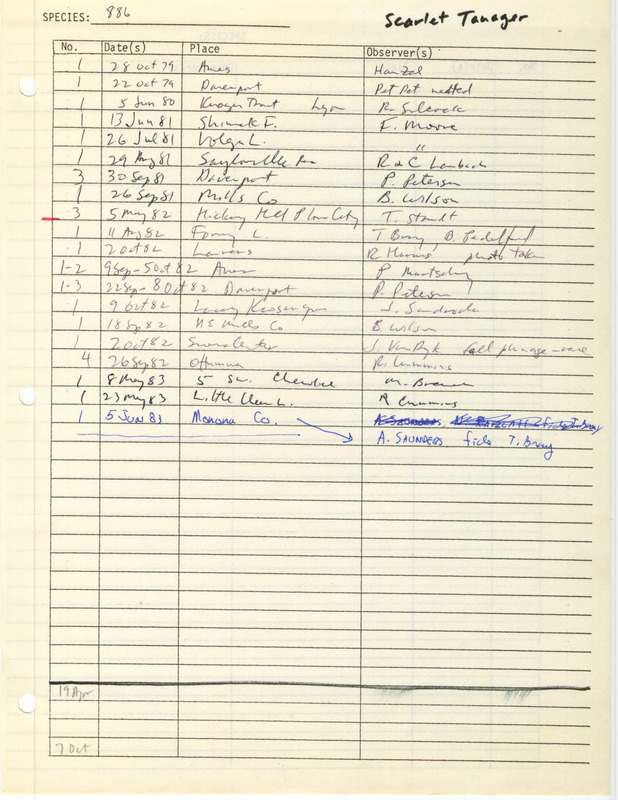 SPECIES: 886 Scarlet Tanager
No. Date(s) Place Observer(s)
1 28 Oct 79 Ames Hanzel
1 22 Oct 79 Davenport Pet Pet netted
1 5 Jun 80 Lyon R. Silcock
1 13 Jun 81 Shimek F. F. Moore
1 26 Jul 81 Volga L. "
1 29 Aug 81 Saylorville Res R & C
3 30 Sep 81 Davenport P. Petersen
1 26 Sep 81 Mills Co B. Wilson
3 5 May 82 Hickory Hill P Iowa City T. Staudt
1 11 Aug 82 L. T Bray B. Padelford
1 2 Oct 82 Lamoni R photo taken
1-2 9 Sep-5 Oct 82 Ames P Martsching
1-3 22 Sep-8 Oct 82 Davenport P. Petersen
1 9 Oct 82 J.
1 18 Sep 82 NE Mills Co B Wilson
1 2 Oct 82 J Van Dyk fall plumage
4 26 Sep 82 Ottumwa R. Cummins
1 8 May 83 5 SW. Cherokee M. Brewer
1 23 May 83 Little L. R Cummins
1 5 JUN 83 Monona Co.
A. SAUNDERS fide T. Bray
19 Apr
7 Oct